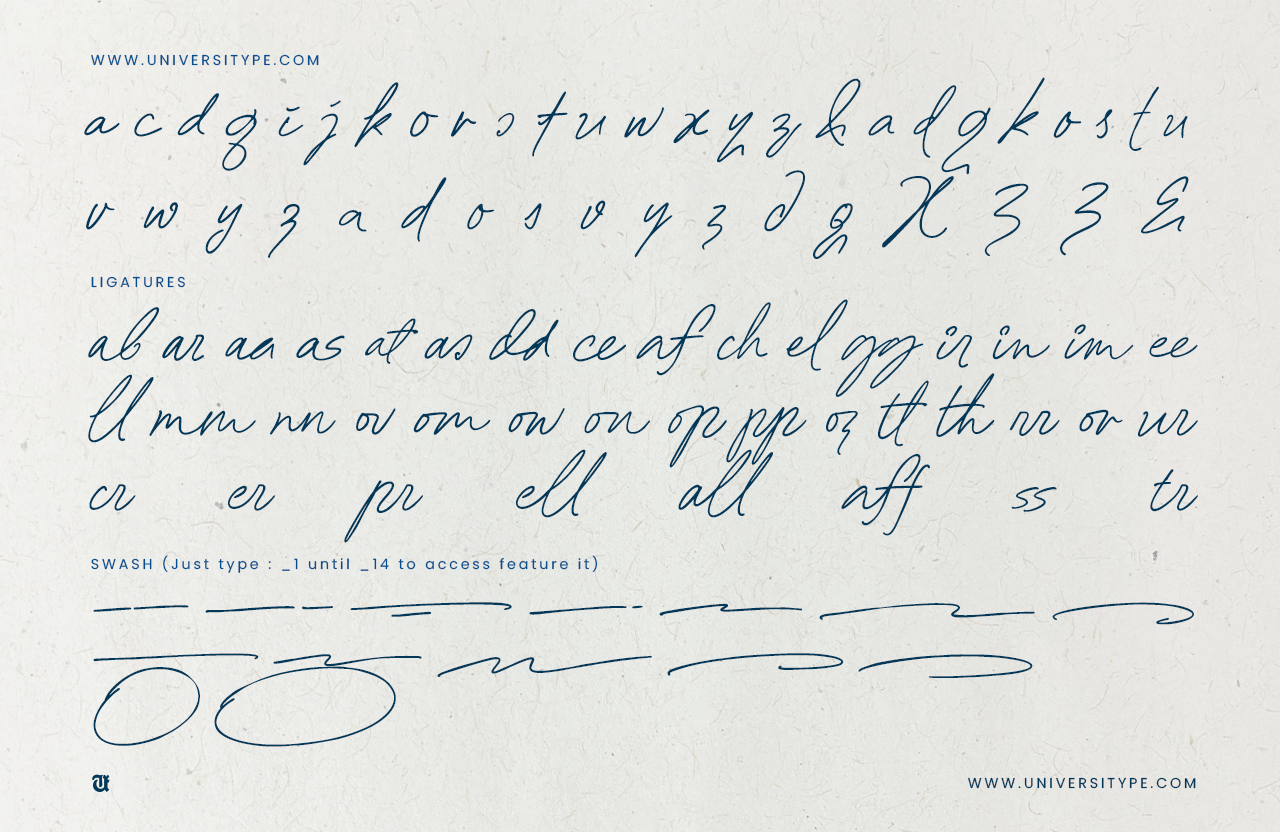 WWW.UNIVERSITYPE.COM
a c d g i j k o r s t u w x y z & a d g k o s t u
v w y z a d o s v y z d g X Z Z &
LIGATURES
ab ar aa as at as dd ce af ch el gg ir in im ee
ll mm nn ov om ow on op pp oz tt th rr or ur
cr er pr ell all aff ss tr
SWASH (Just type : _1 until _14 to access feature it)
U
WWW.UNIVERSITYPE.COM